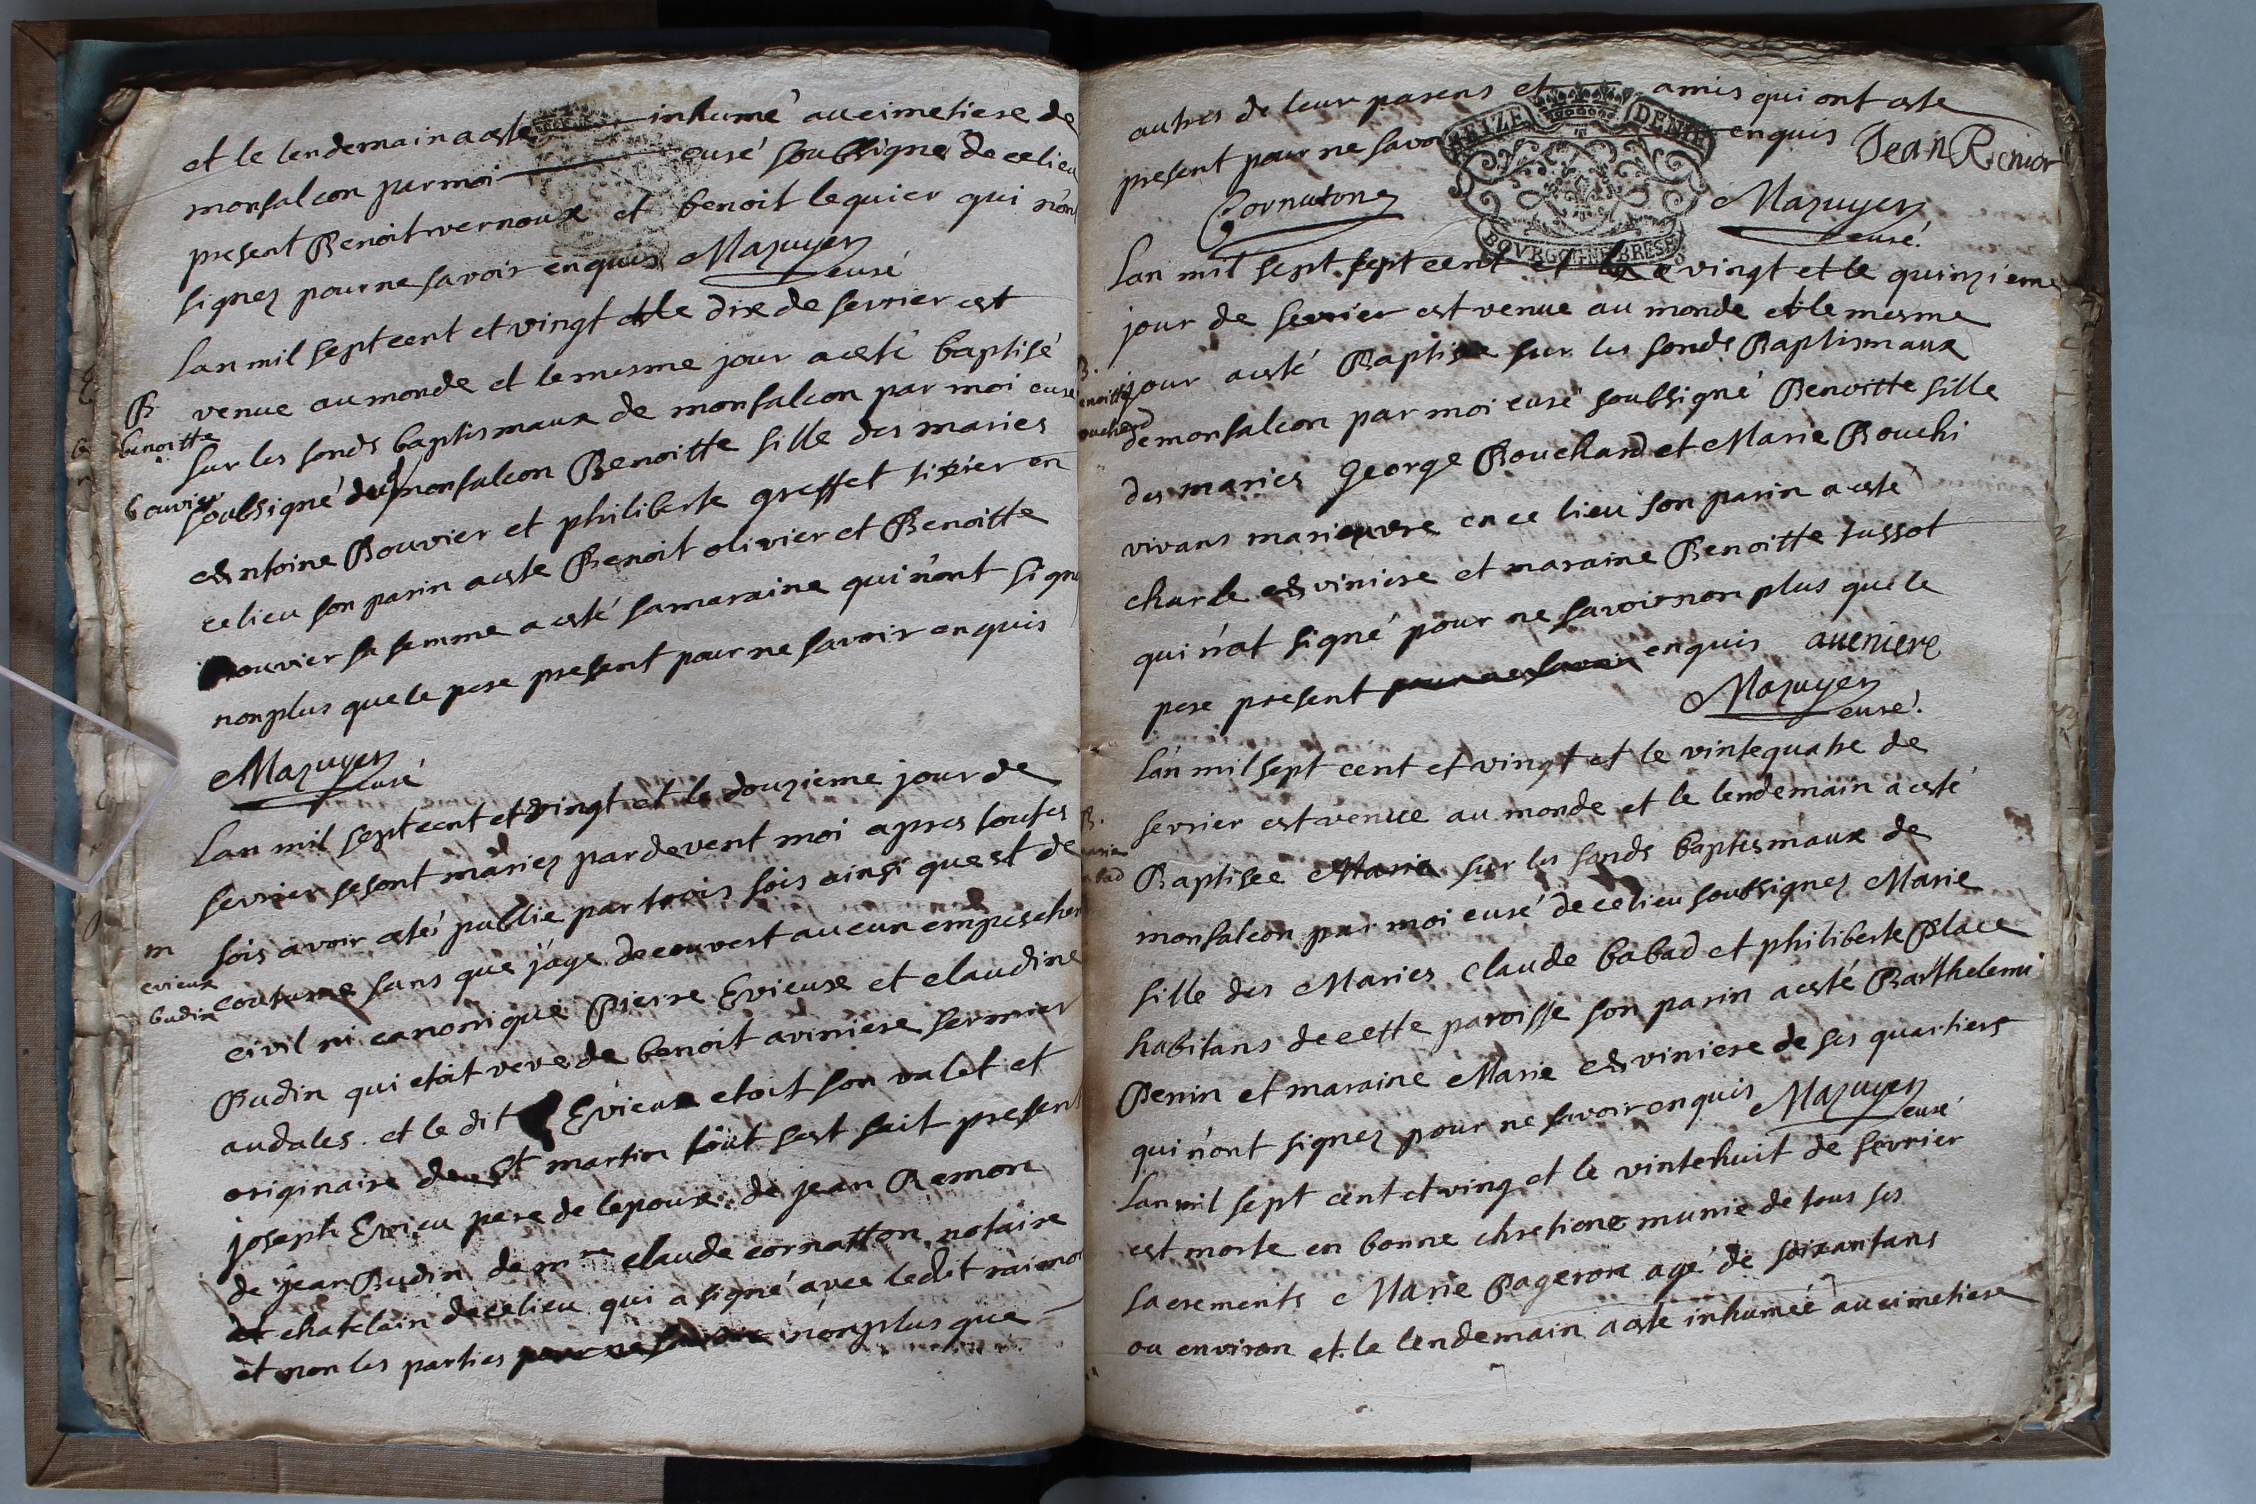 et le lendemain a esté inhumé au cimetiere de
monfalcon par moi curé soubsigné de ce lieu
present Benoit vernoux et benoit lequier qui n'ont
signez pour ne savoir enquis Mazuyer
curé
Lan mil sept cent et vingt et le dix de fevrier est
venue au monde et le mesme jour a esté baptisé
B
benoitte
bouvier
sur les fonds baptismaux de monfalcon par moi curé
soubsigné de monfalcon Benoitte fille des maries
Antoine Bouvier et philiberte greffet tixier en
ce lieu son parin a este Benoit olivier et Benoitte
bouvier sa femme a esté sa maraine qui n'ont signé
non plus que le pere present pour ne savoir enquis
Mazuyer
curé
Lan mil sept cent et vingt et le douzieme jour de
fevrier se sont mariez pardevent moi apres toutes
fois avoir esté publie par trois fois ainsi que st de
m
evieux
budin
coutume sans que j'aye decouvert aucun empesche
civil ni canonique Pierre Evieux et claudine
Budin qui etoit veve de benoit aviniere fermier
audales et le dit Evieux etoit son valet et
originaire de St martin tout s'est fait present
joseph Evieu pere de lepoux de jean Remon
de jean Budin de mre claude cornatton notaire
et chatelain de ce lieu qui a signé avec ledit raimon
et non les parties pour ne savoir non plus que
autres de leur parens et amis qui ont este
present pour ne savoir enquis Jean Remon
SEIZE DENIERS
BOVRGOGNE BRESSE
Cornaton Mazuyer
curé.
Lan mil sept sept cent et vingt et le quinzieme
jour de fevrier est venue au monde et le mesme
B.
benoitte
bouchard
jour a esté Baptisee sur les fonds Baptismaux
de monfalcon par moi curé soubsigné Benoitte fille
des maries George Bouchard et Marie Bouchi
vivans mari euvre en ce lieu son parin a esté
charle Aviniere et maraine Benoitte tussot
qui n'at signé pour ne savoir non plus que le
pere present pour ne savoir enquis aueniere
Mazuyer
curé.
Lan mil sept cent et vingt et le vintequatre de
fevrier est venue au monde et le lendemain a esté
B.
marie
babad
Baptisee Marie sur les fonds baptismaux de
monfalcon par moi curé de ce lieu soubsignez Marie
fille des Maries Claude babad et philiberte Place
habitans de cette paroisse son parin a esté Barthelemi
Penin et maraine Marie Aviniere de ses quartiers
qui n'ont signez pour ne savoir enquis Mazuyer
curé
Lan mil sept cent et ving et le vintehuit de fevrier
est morte en bonne chretiene munie de tous ses
sacrements Marie Pageron agé de soixantans
ou environ et le lendemain a este inhumeé au cimetiere